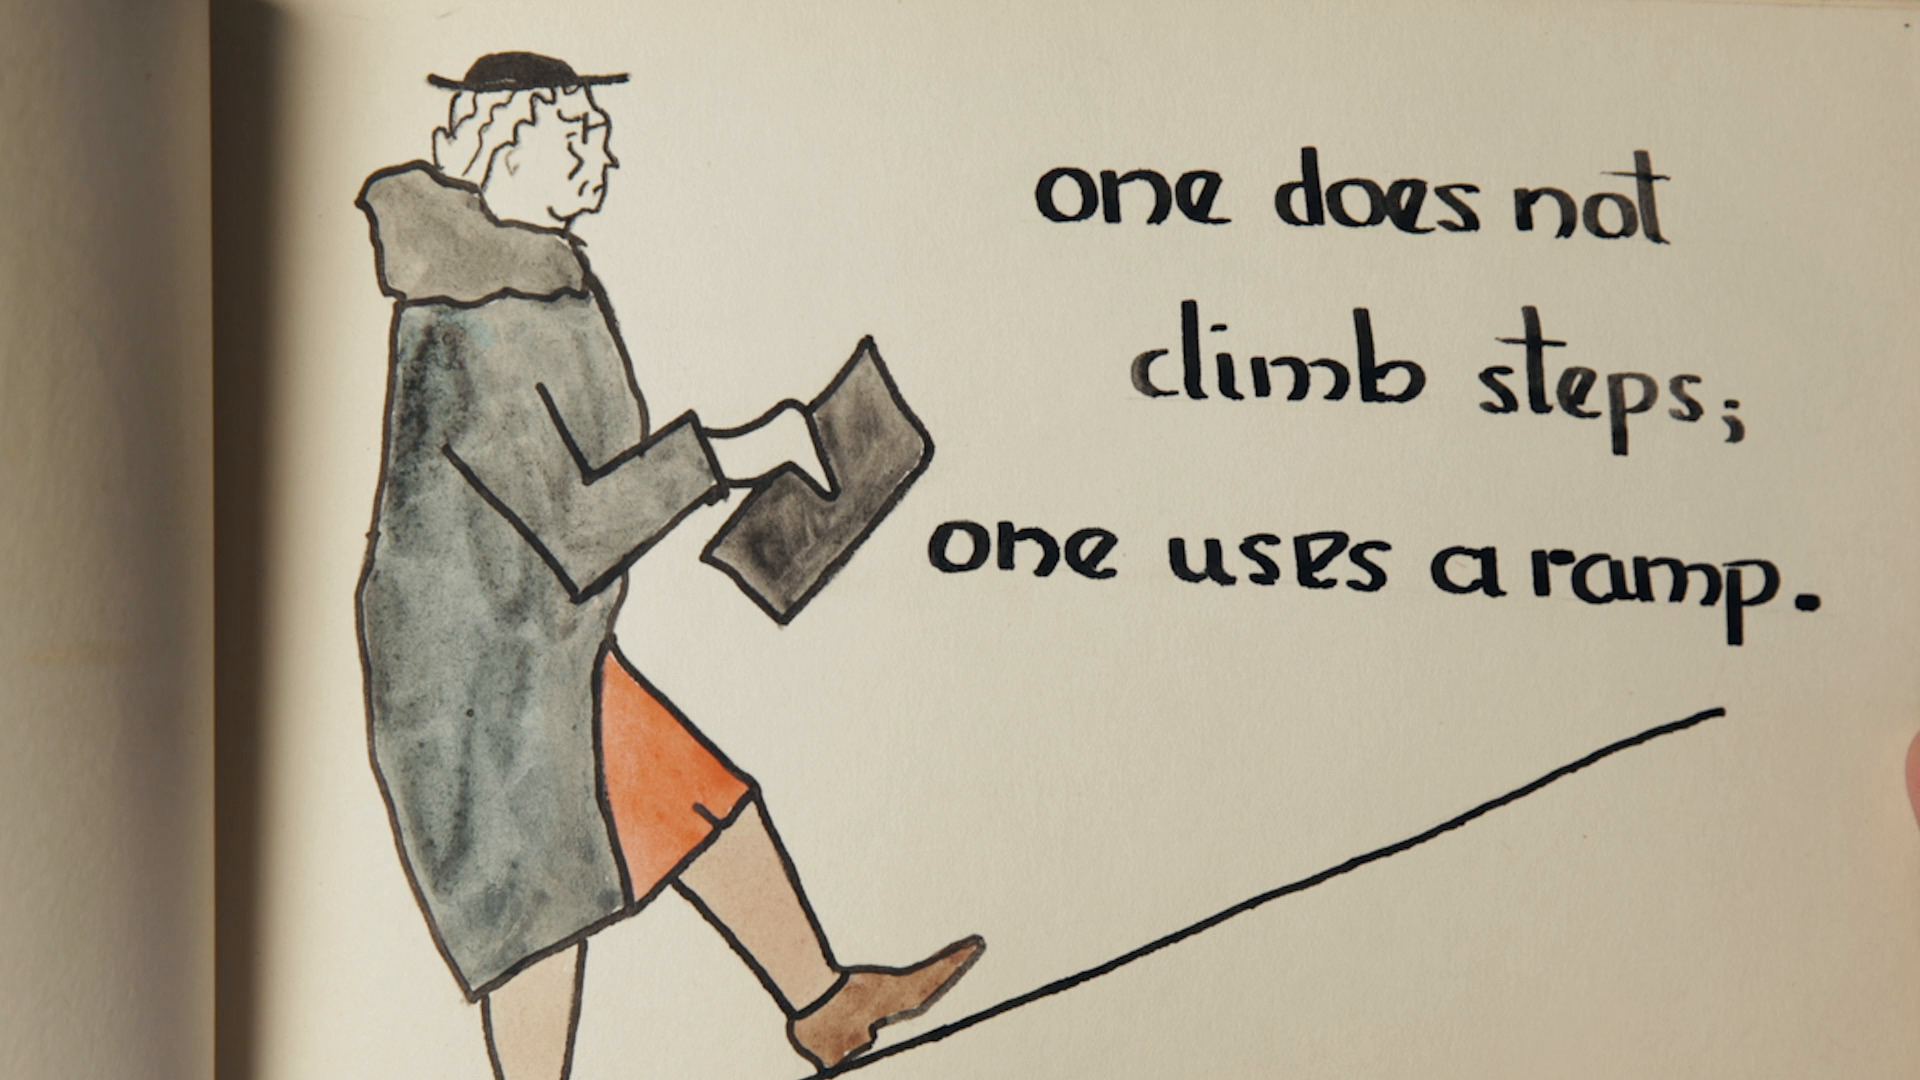 one does not
climb steps;
one uses a ramp.